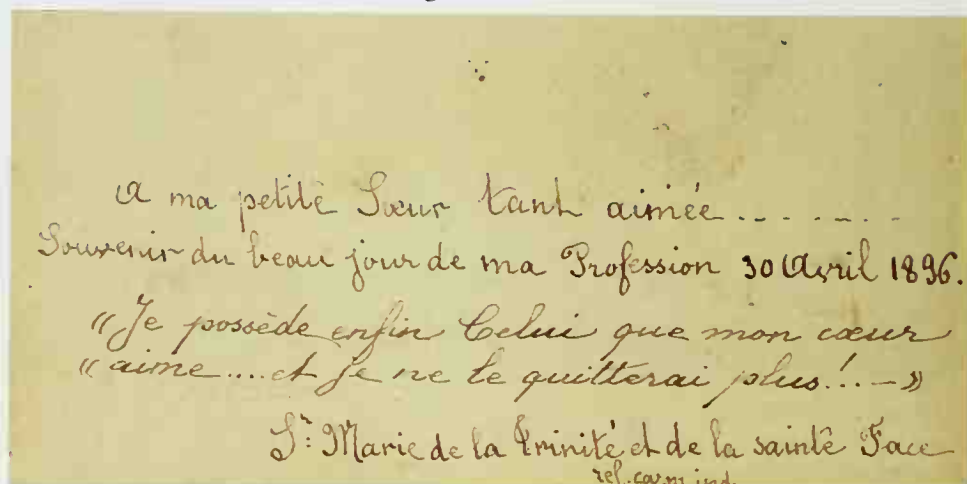 A ma petite Sœur tant aimée .........
Souvenir du beau jour de ma Profession 30 Avril 1896.
"Je possède enfin Celui que mon cœur
"aime....et je ne le quitterai plus!..—"
Sr Marie de la Trinité et de la sainte Face
rel. carm. ind.